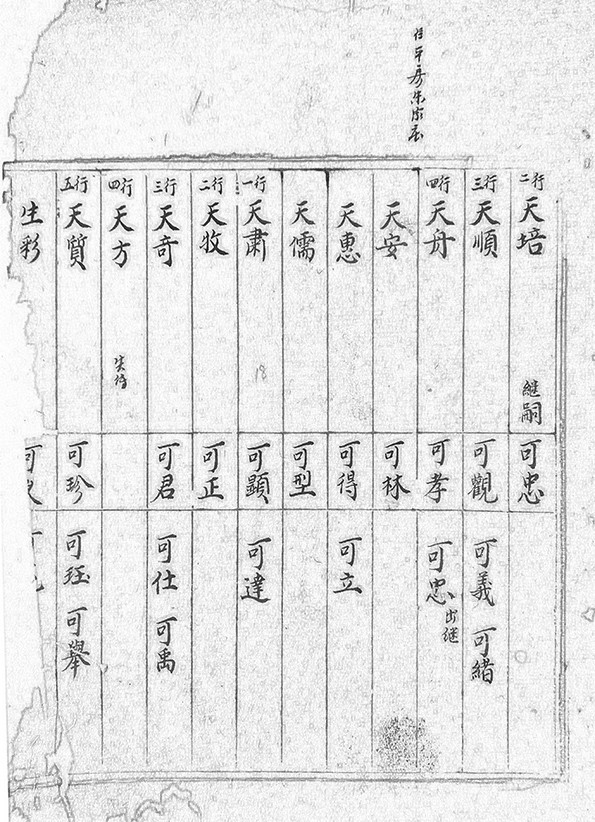 二行 天培 继嗣 可忠
三行 天順 可觀 可義 可緒
四行 天舟 可孝 可忠 出继
天安 可林
天惠 可得 可立
天儒 可型
一行 天肅 18 可顯 可達
二行 天牧 可正
三行 天奇 可君 可仕 可禹
四行 天方 失待
五行 天質 可珍 可珏 可舉
生彩